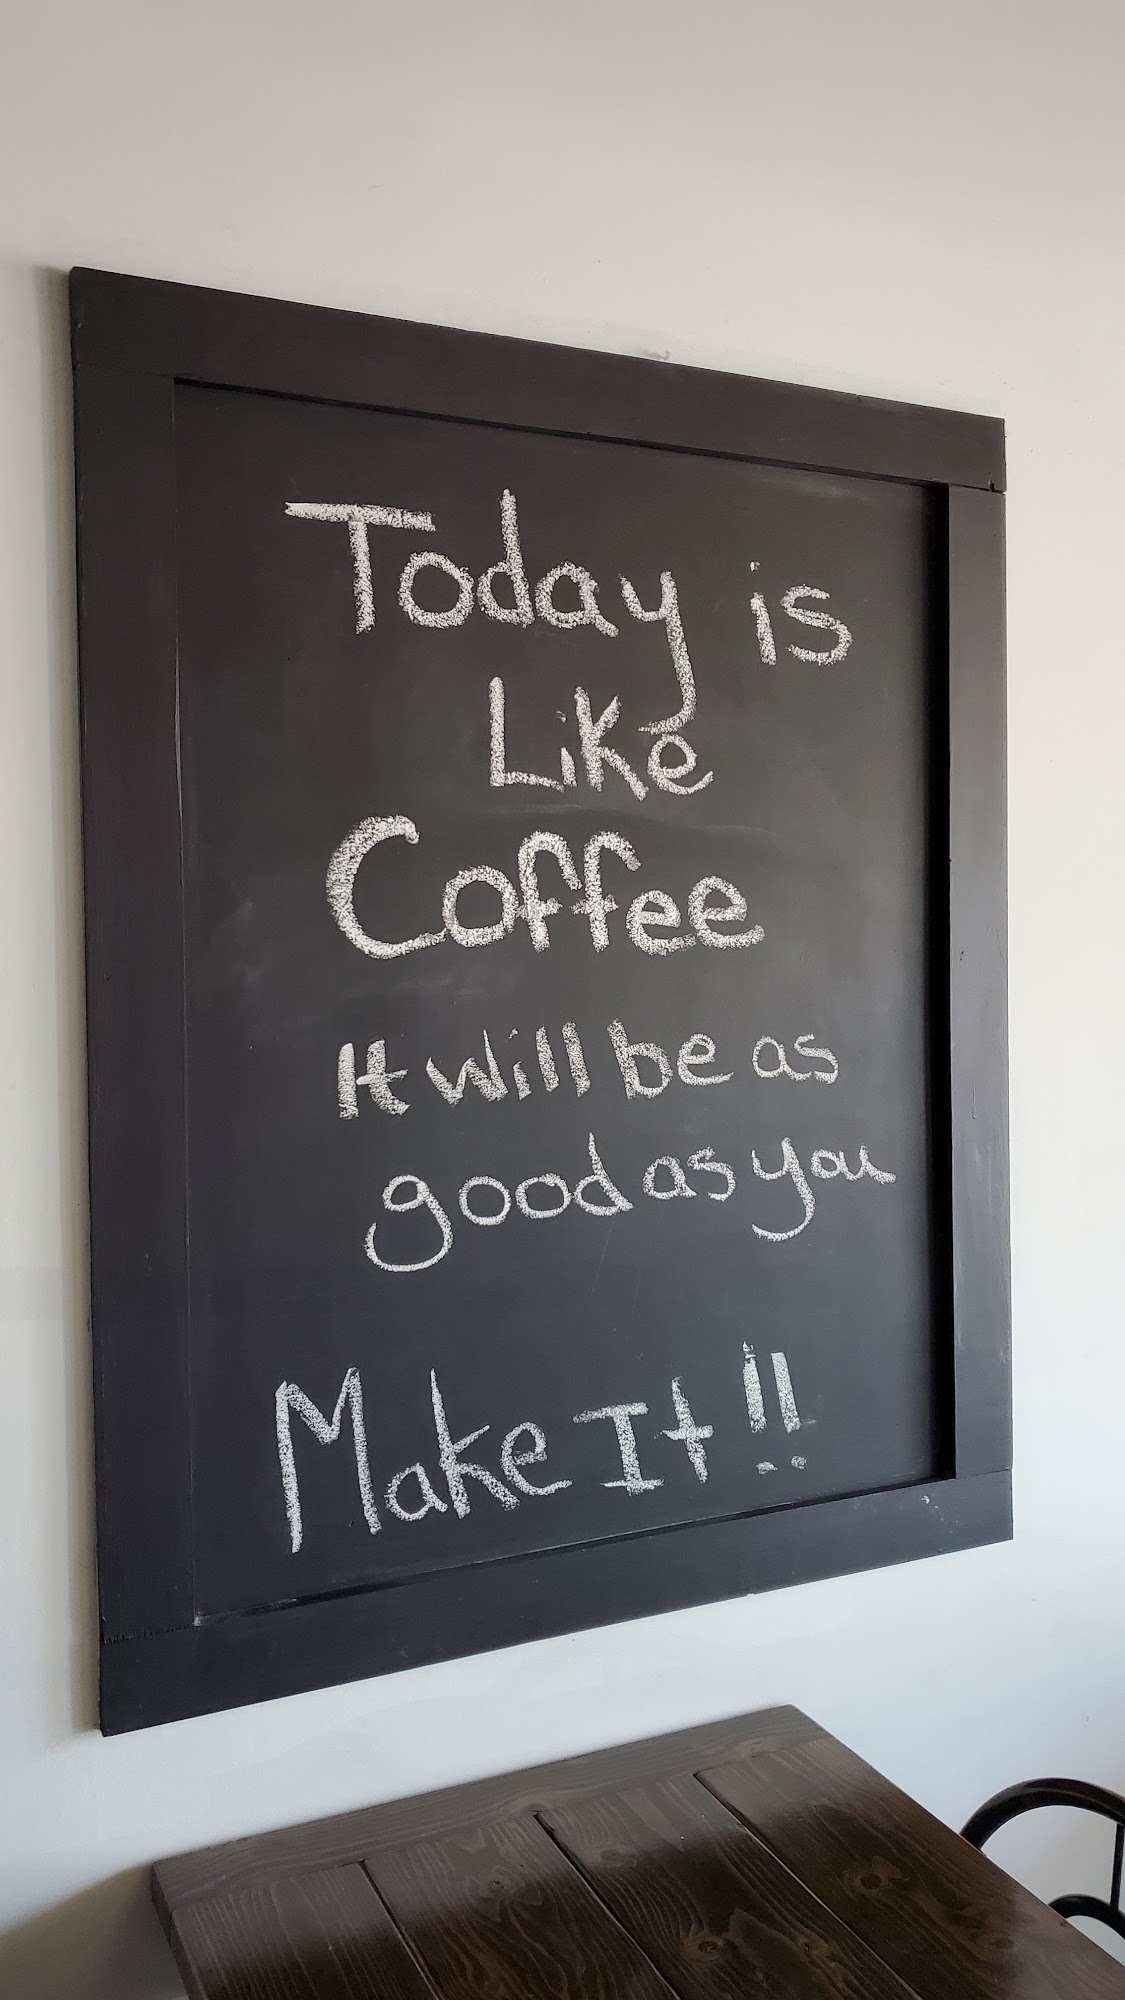 Today is
Like
Coffee
It will be as
good as you
Make It!!